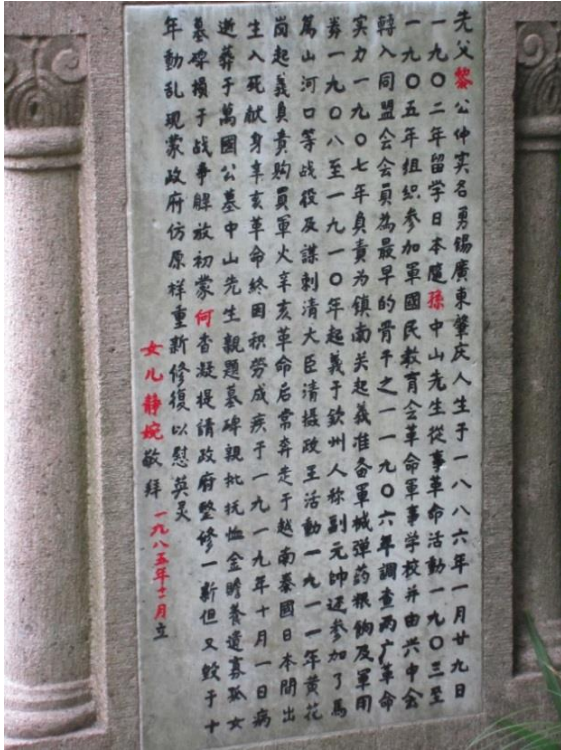 先父黎公仲实名勇锡廣東肇庆人生于一八八六年一月廿九日
一九〇二年留学日本隨孫中山先生從事革命活動一九〇三至
一九〇五年組织参加軍國民教育会革命軍事学校并由兴中会
轉入同盟会会員為最早的骨干之一一九〇六年調查两广革命
实力一九〇七年負責为镇南关起義准备軍械弹药粮餉及軍用
券一九〇八至一九一〇年起義于欽州人称副元帥还参加了馬
篤山河口等战役及謀刺清大臣清摄政王活動一九一一年黄花
岗起義負責购買軍火辛亥革命后常奔走于越南暴國日本間出
生入死献身辛亥革命終因积勞成疾于一九一九年十月一日病
逝葬于萬國公墓中山先生親題墓碑親批抚恤金瞻養遺寡孤女
墓碑損于战爭解放初蒙何香凝提請政府整修一新但又毀于十
年動乱現蒙政府仿原样重新修復以慰英灵
女儿静婉敬拜 一九八五年十二月立